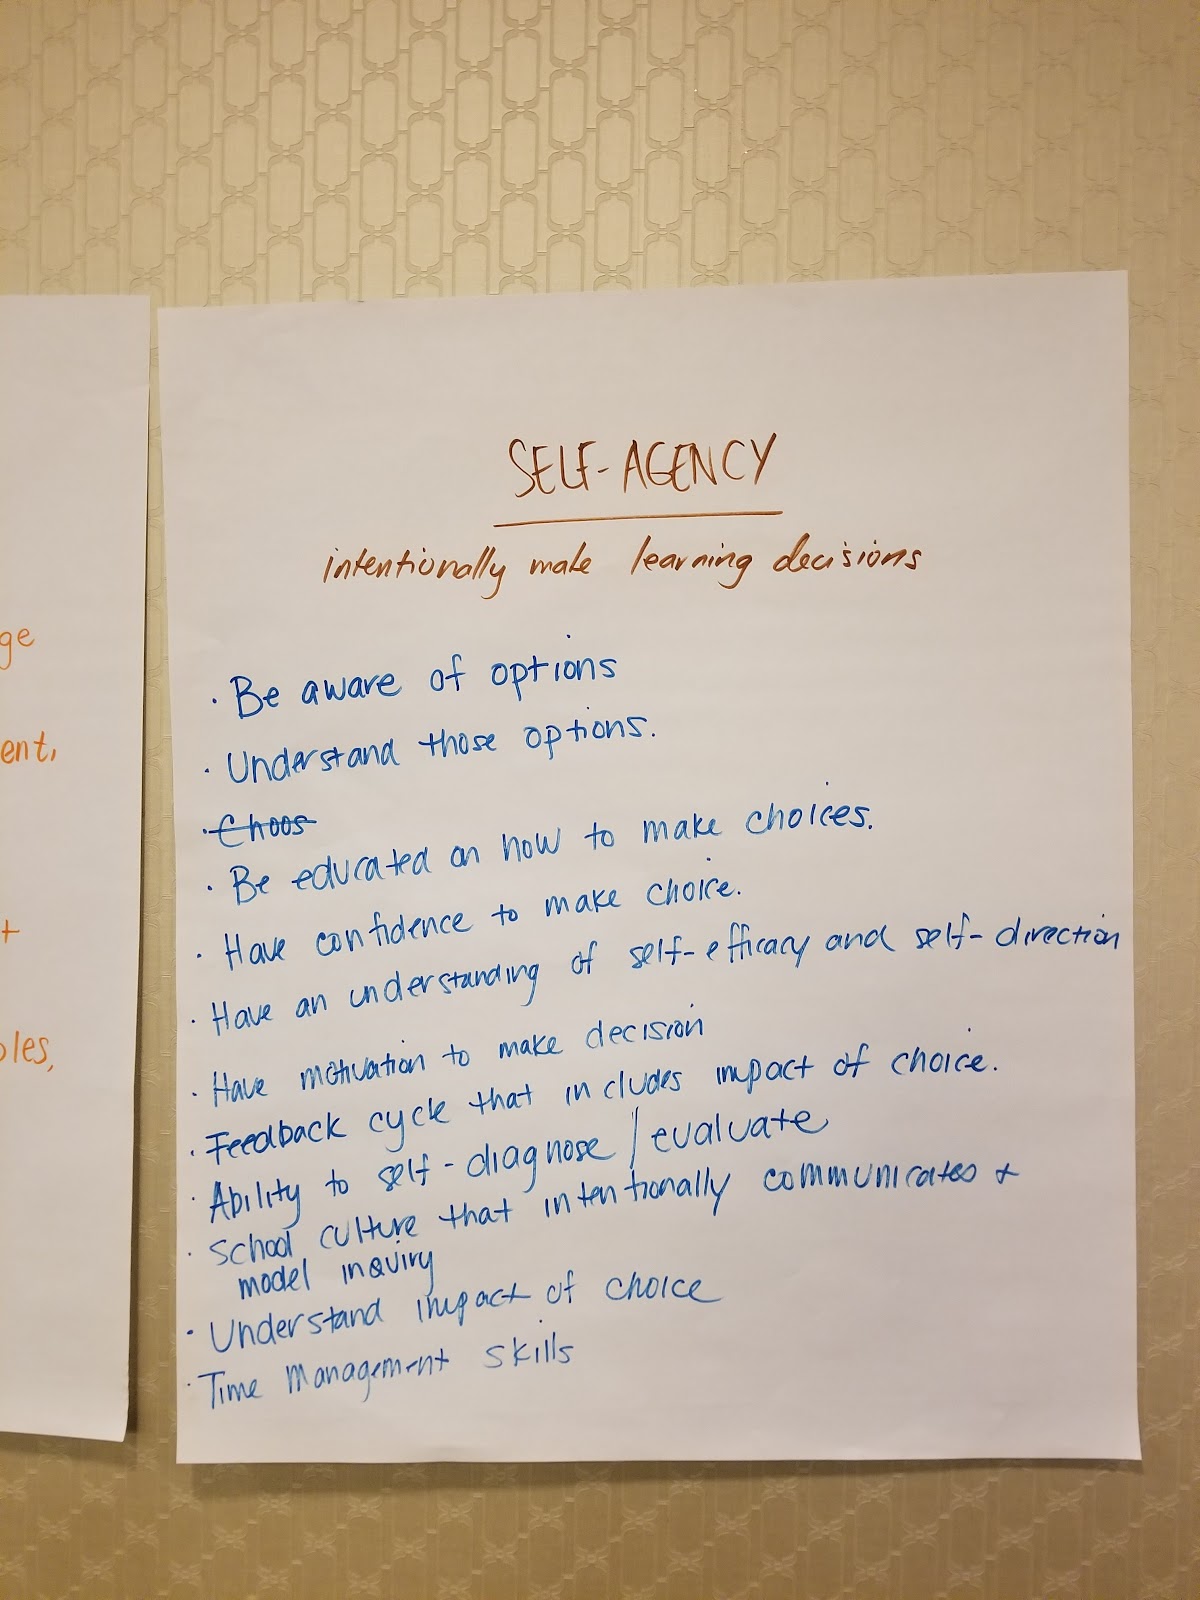 SELF-AGENCY
intentionally make learning decisions
· Be aware of options
· Understand those options.
· Choos
· Be educated on how to make choices.
· Have confidence to make choice.
· Have an understanding of self-efficacy and self-direction
· Have motivation to make decision
· Feedback cycle that includes impact of choice.
· Ability to self-diagnose / evaluate
· School culture that intentionally communicates +
model inquiry
· Understand impact of choice
· Time Management skills
ge
ent,
+
oles,